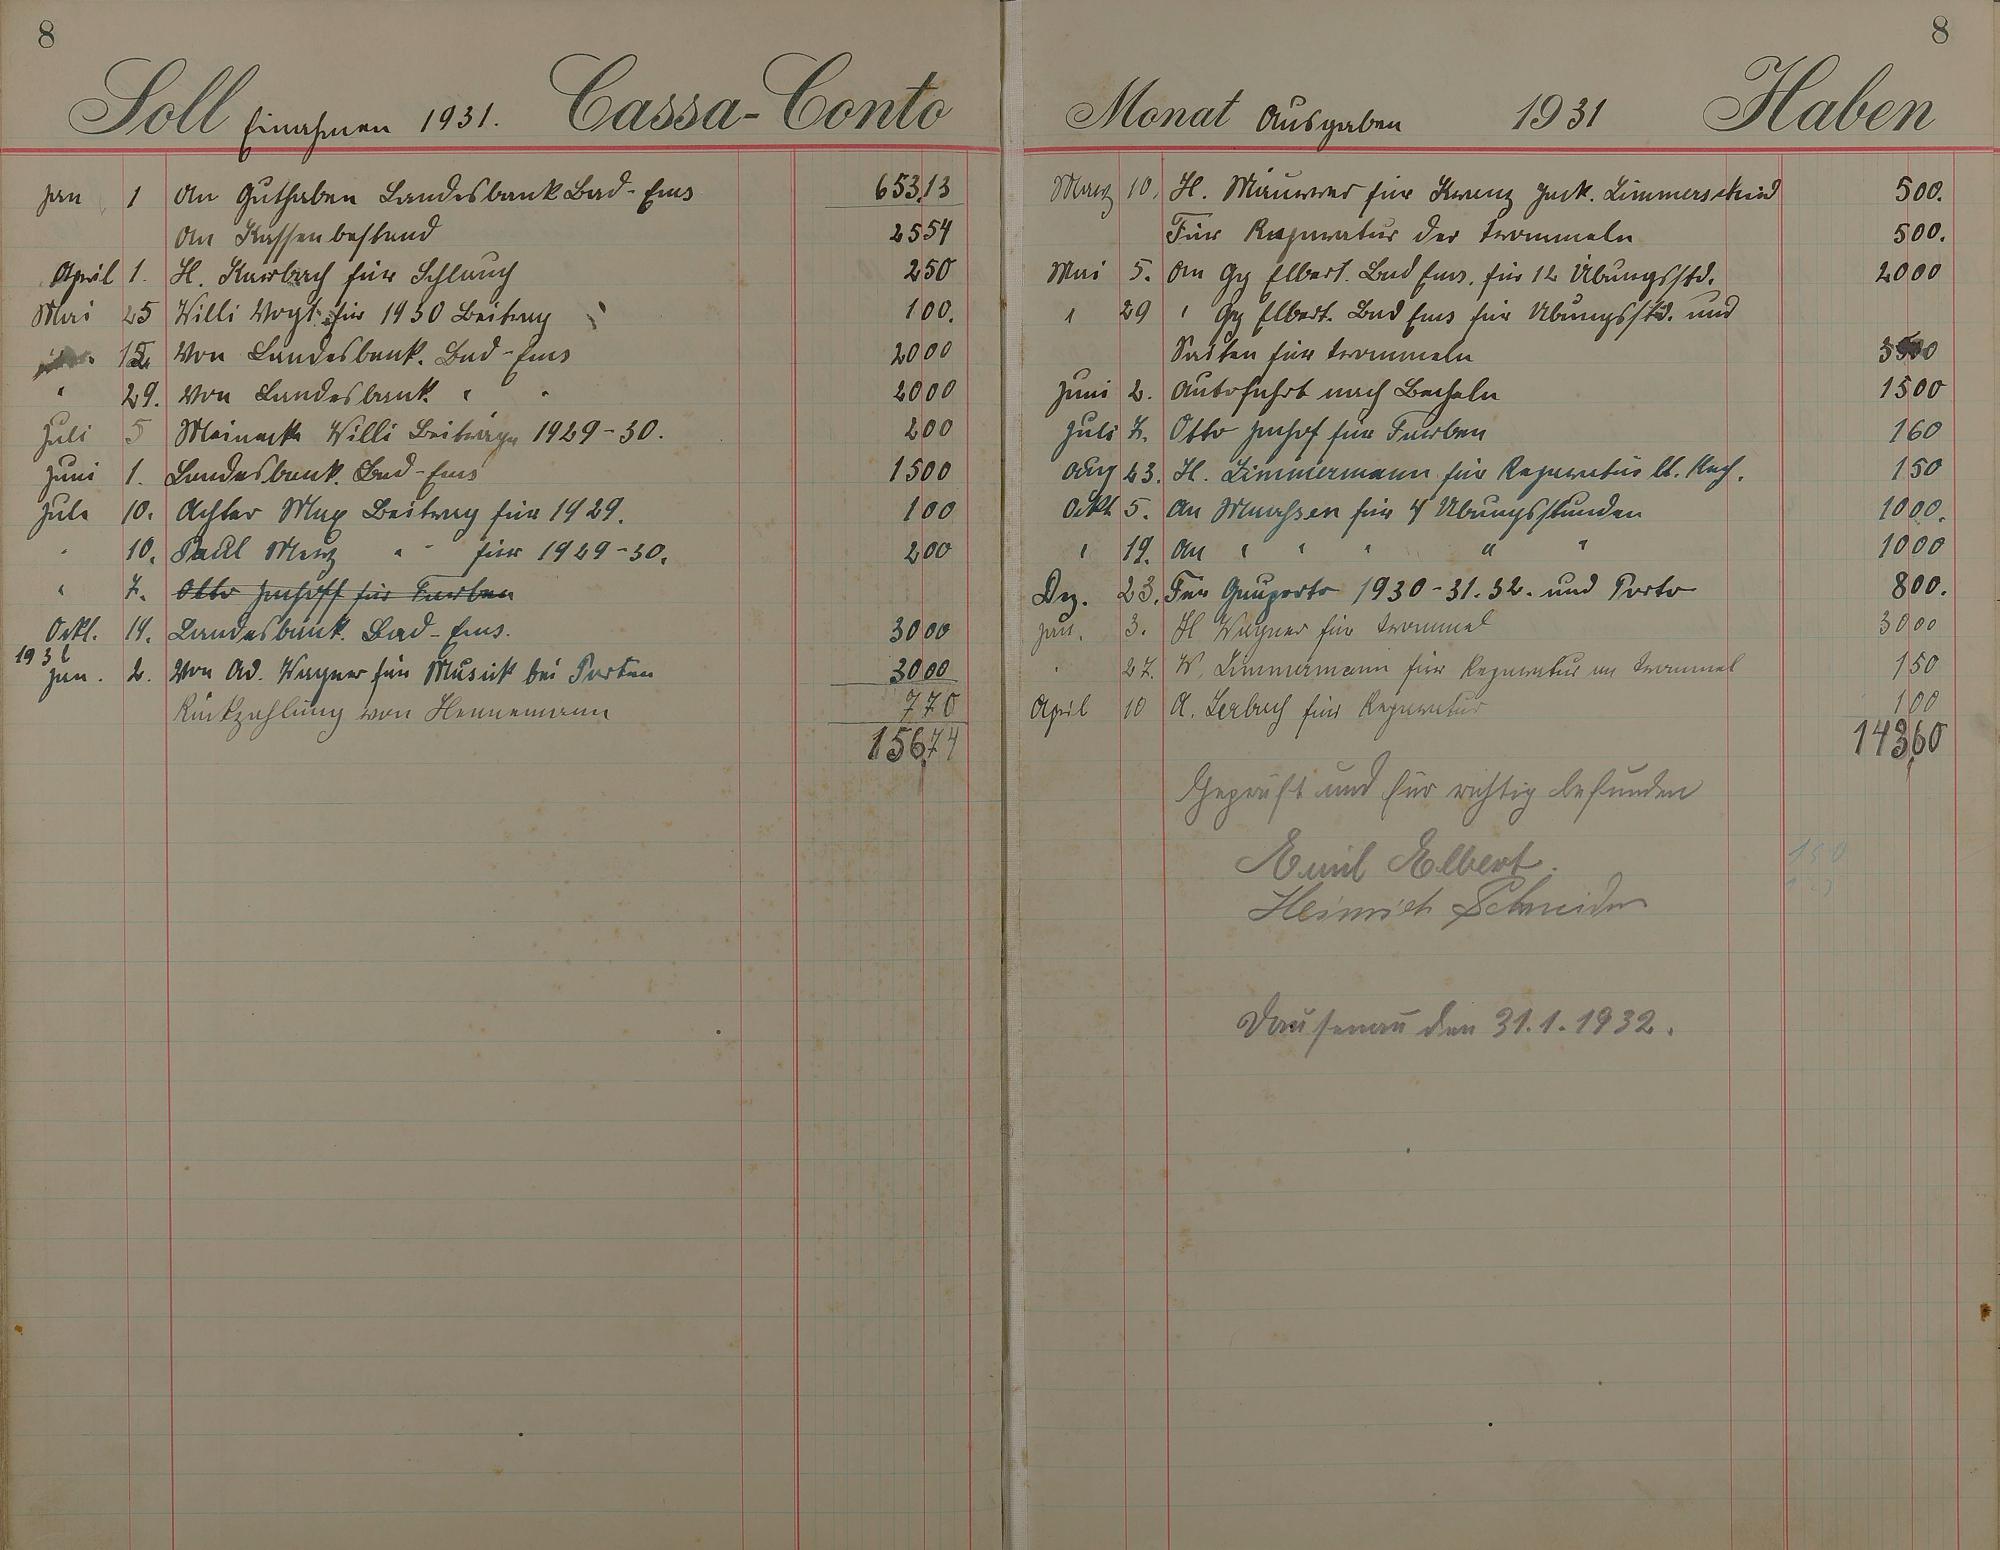 8
Soll Einahmen 1931. Cassa-Conto
Jan 1 An Guthaben Landesbank Bad-Ems 653,13
An Kassenbestand 2554
April 1. H. Kurbach für Schlauch 250
Mai 25 Willi Vogt für 1930 Beitrag 100.
15. Von Landesbank. Bad-Ems 2000
" 29. Von Landesbank " " 2000
Juli 5 Meinecke Willi Beiträge 1929-30. 200
Juni 1. Landesbank. Bad-Ems 1500
Jule 10. Achter Max Beitrag für 1929. 100
" 10. Paul Merz " " für 1929-30. 200
" 7. Otto Imhoff für Farben
Ockt. 14. Landesbank. Bad-Ems. 3000
1932
Jan. 2. Von Ad. Wagner für Musick bei Porten 3000
Rückzahlung von Hennemann 770
156,74
8
Monat Ausgaben 1931 Haben
März 10. H. Maurer für Kranz Jack. Zimmerschied 500.
Für Reparatur der Trommeln 500.
Mai 5. An Gg Elbert. Bad Ems. für 12 Übungsstd. 2000
" 29 " Gg Elbert. Bad Ems für Übungsstd. und
Saiten für Trommeln
Juni 2. Autofahrt nach Becheln 1500
Juli 7. Otto Imhof für Farben 160
Aug 23. H. Zimmermann für Reparatur lt. Rech. 150
Ockt 5. An Maassen für 4 Übungsstunden 1000.
" 19. An " " " " " 1000
Dez. 23. Für Gauporto 1930-31.32. und Porto 800.
Jan. 3. H Wagner für Trommel 3000
" 27. W. Zimmermann für Reparatur an Trommel 150
April 10 A. Lerbach für Reparatur 100
143,60
Geprüft und für richtig befunden
Emil Elbert.
Heinrich Schneider
150
Dausenau den 31.1.1932.